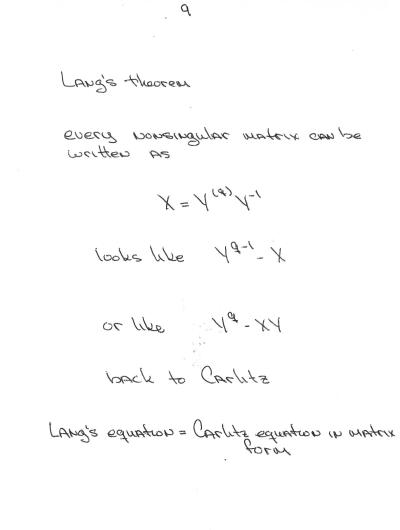 9
Lang's theorem
every nonsingular matrix can be
written as
X = Y^(q) Y^-1
looks like Y^q-1 - X
or like Y^q - XY
back to Carlitz
Lang's equation = Carlitz equation in matrix
form